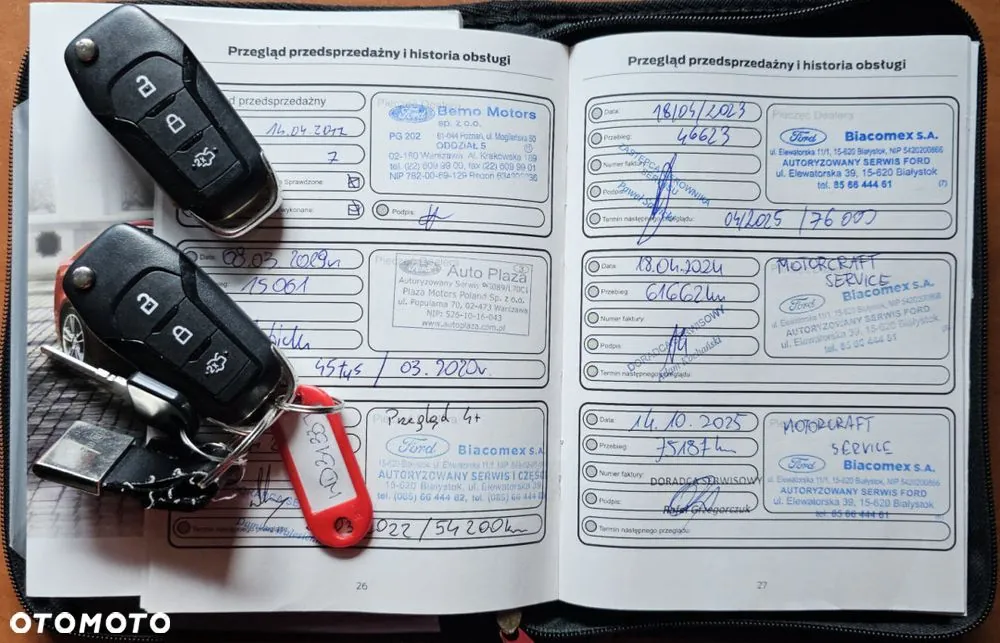 Przegląd przedsprzedażny i historia obsługi
d przedsprzedażny
7
Sprawdzone
Podpis:
Ford
Bemo Motors
sp. z o.o.
PG 202
61-044 Poznań, ul.
ODDZIAŁ 5
02-180 Warszawa, Al. Krakowska
tel. (22) 609 99 00, fax (22) 609 99 01
NIP 782-00-69-129 Regon
15061
Pieczęć Dealera
Ford
Auto Plaza
Autoryzowany Serwis
Plaza Motors Poland Sp. z o.o.
ul. Popularna 70, 02-473 Warszawa
NIP: 526-10-16-043
www.autoplaza.com.pl
45tyś / 03.2020r.
Przegląd 4+
Ford
Biacomex S.A.
AUTORYZOWANY SERWIS I CZĘŚCI
15-620 Białystok, ul. Elewatorska
Termin następnego
022 / 54 200km
26
Przegląd przedsprzedażny i historia obsługi
Data: 18/04/2023
Przebieg: 46623
Numer faktury:
Podpis
ZASTĘPCA KIEROWNIKA
SERWISU
Paweł
Pieczęć Dealera
Ford
Biacomex S.A.
ul. Elewatorska 11/1, 15-620 Białystok, NIP 5420200866
AUTORYZOWANY SERWIS FORD
ul. Elewatorska 39, 15-620 Białystok
tel. 85 66 444 61
Termin następnego przeglądu: 04/2025 / 76 000
Data: 18.04.2024
Przebieg: 61662km
Numer faktury:
Podpis
DORADCA SERWISOWY
Adam
MOTORCRAFT
SERVICE
Ford
Biacomex S.A.
ul. Elewatorska 11/1, 15-620 Białystok, NIP
AUTORYZOWANY SERWIS FORD
ul. Elewatorska 39, 15-620 Białystok
tel. 85 66 444 61
Termin następnego przeglądu:
Data: 14.10.2025
Przebieg: 75187km
Numer faktury:
Podpis:
DORADCA SERWISOWY
Rafał Grzegorczuk
MOTORCRAFT
SERVICE
Ford
Biacomex S.A.
ul. Elewatorska 11/1, 15-620 Białystok, NIP
AUTORYZOWANY SERWIS FORD
ul. Elewatorska 39, 15-620 Białystok
tel. 85 66 444 61
Termin następnego przeglądu:
27
OTOMOTO